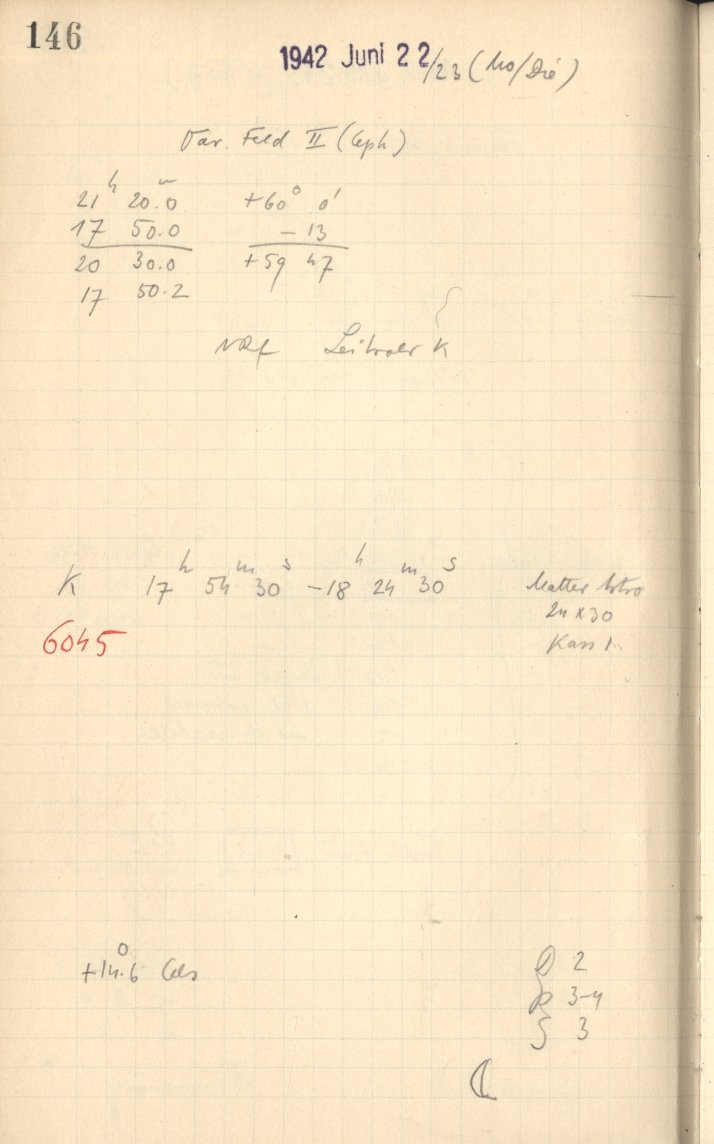 146
1942 Juni 22/23 (Mo/Die)
Var. Feld II (Ceph)
21 h 20.0 m +60° 0'
17 50.0 - 13
20 30.0 +59 47
17 50.2
K
K 17 h 54 m 30 s - 18 h 24 m 30 s
24 x 30
Kass 1.
6045
+14.6° Cels
D 2
R 3-4
S 3
☾